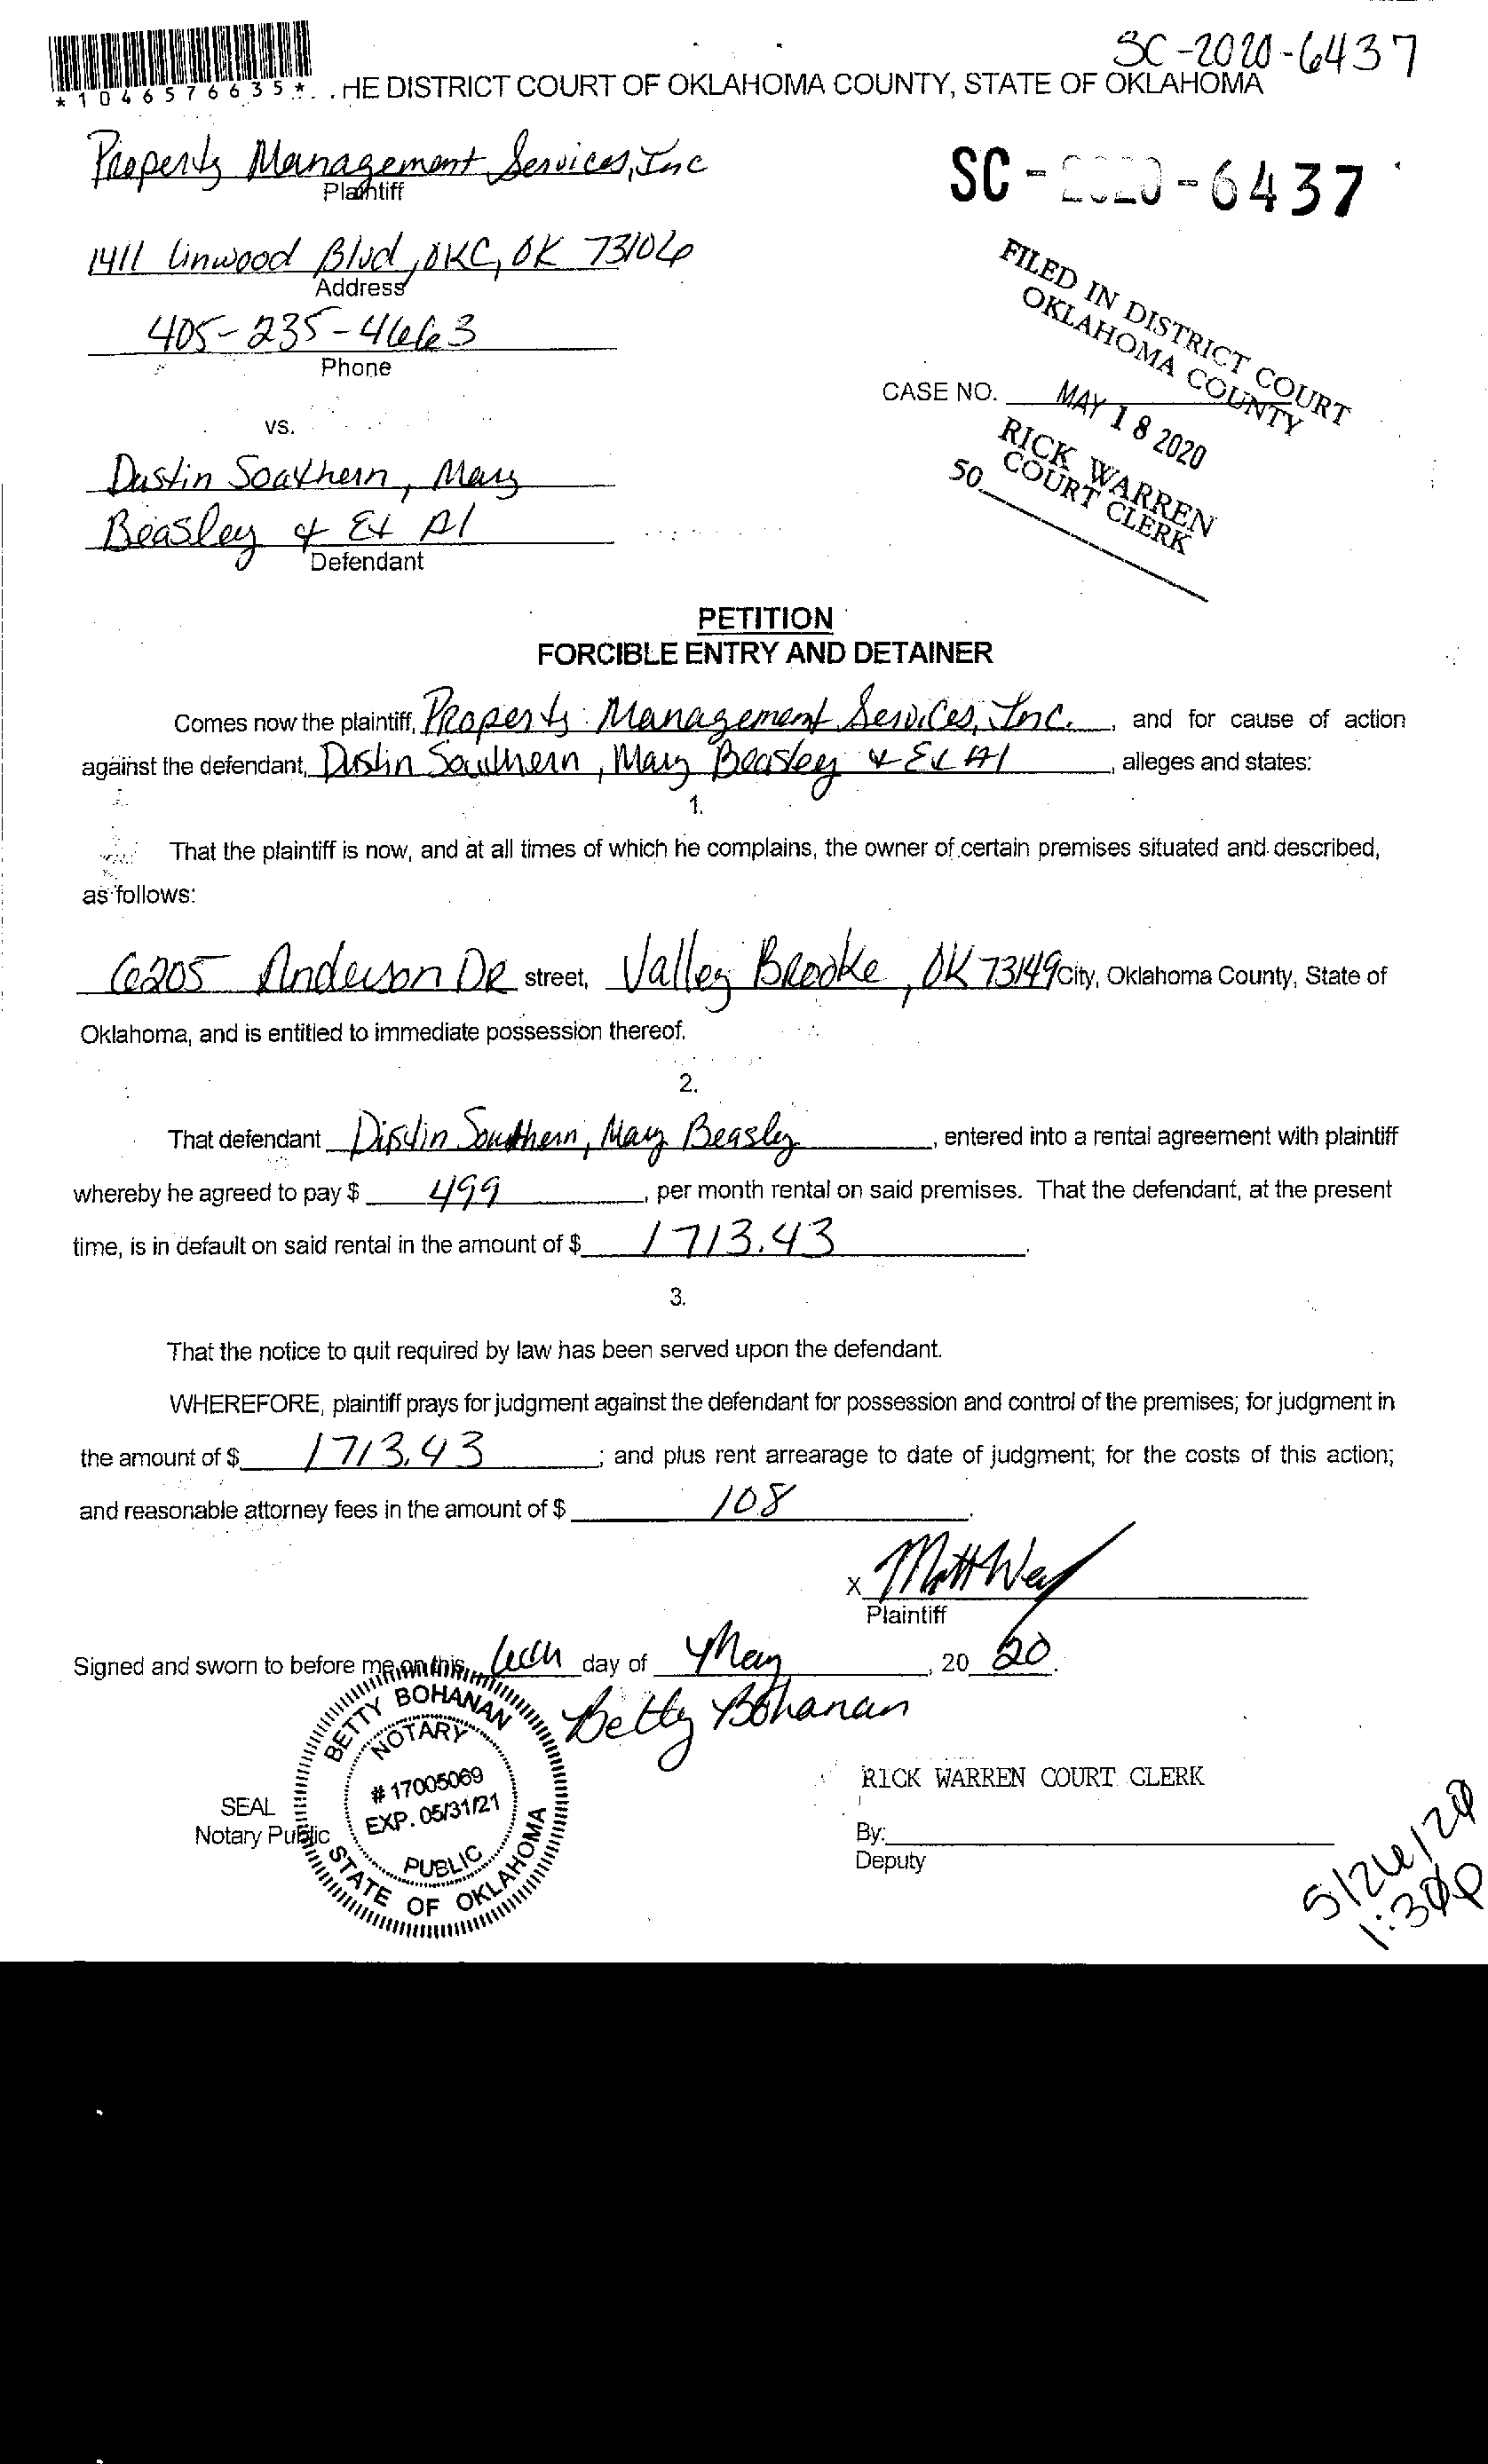 SC-2020-6437
*1046576635*
HE DISTRICT COURT OF OKLAHOMA COUNTY, STATE OF OKLAHOMA
Property Management Services, Inc
Plaintiff
SC-2020-6437
1411 Linwood Blvd, OKC, OK 73106
Address
405-235-4663
Phone
FILED IN DISTRICT COURT
OKLAHOMA COUNTY
MAY 18 2020
RICK WARREN
COURT CLERK
50
CASE NO.
vs.
Dustin Southern, Mary
Beasley & Et Al
Defendant
PETITION
FORCIBLE ENTRY AND DETAINER
Comes now the plaintiff, Property Management Services, Inc. , and for cause of action
against the defendant, Dustin Southern, Mary Beasley & Et Al , alleges and states:
1.
That the plaintiff is now, and at all times of which he complains, the owner of certain premises situated and described,
as follows:
6205 Anderson DR street, Valley Brooke, OK 73149 City, Oklahoma County, State of
Oklahoma, and is entitled to immediate possession thereof.
2.
That defendant Dustin Southern, Mary Beasley , entered into a rental agreement with plaintiff
whereby he agreed to pay $ 499 , per month rental on said premises. That the defendant, at the present
time, is in default on said rental in the amount of $ 1713.43 .
3.
That the notice to quit required by law has been served upon the defendant.
WHEREFORE, plaintiff prays for judgment against the defendant for possession and control of the premises; for judgment in
the amount of $ 1713.43 ; and plus rent arrearage to date of judgment; for the costs of this action;
and reasonable attorney fees in the amount of $ 108 .
x Matt
Plaintiff
Signed and sworn to before me on this day of May , 20 20.
Betty Bohanan
BETTY BOHANAN
NOTARY
# 17005069
EXP. 05/31/21
PUBLIC
STATE OF OKLAHOMA
SEAL
Notary Public
RICK WARREN COURT CLERK
By:
Deputy
5/26/20
1:30p